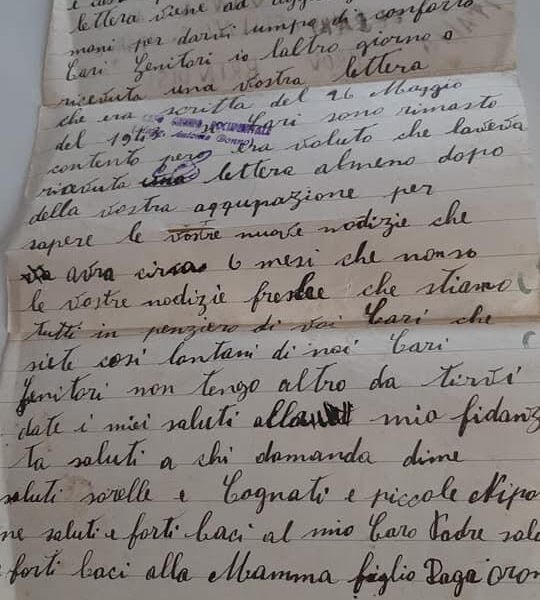 lettera viene ad
mani per darvi umpo di conforto
Cari Genitori io laltro giorno o
ricevuta una vostra lettera
che era scritta del 26 Maggio
del 1943 Cari sono rimasto
contento però era voluto che laveva
riavuta una lettera almeno dopo
della vostra aggupazione per
sapere le vostre nuove nodizie che
avra circa 6 mesi che nonso
le vostre nodizie freshe che stiamo
tutti in penziero di voi Cari che
siete cosi lontani di noi Cari
Genitori non tengo altro da tirvi
date i miei saluti alla mia fidanz
ta saluti a chi domanda dime
saluti sorelle e Cognati e piccole Nipo
ne saluti e forti baci al mio Caro Padre salu
e forti baci alla Mamma figlio Daga oron